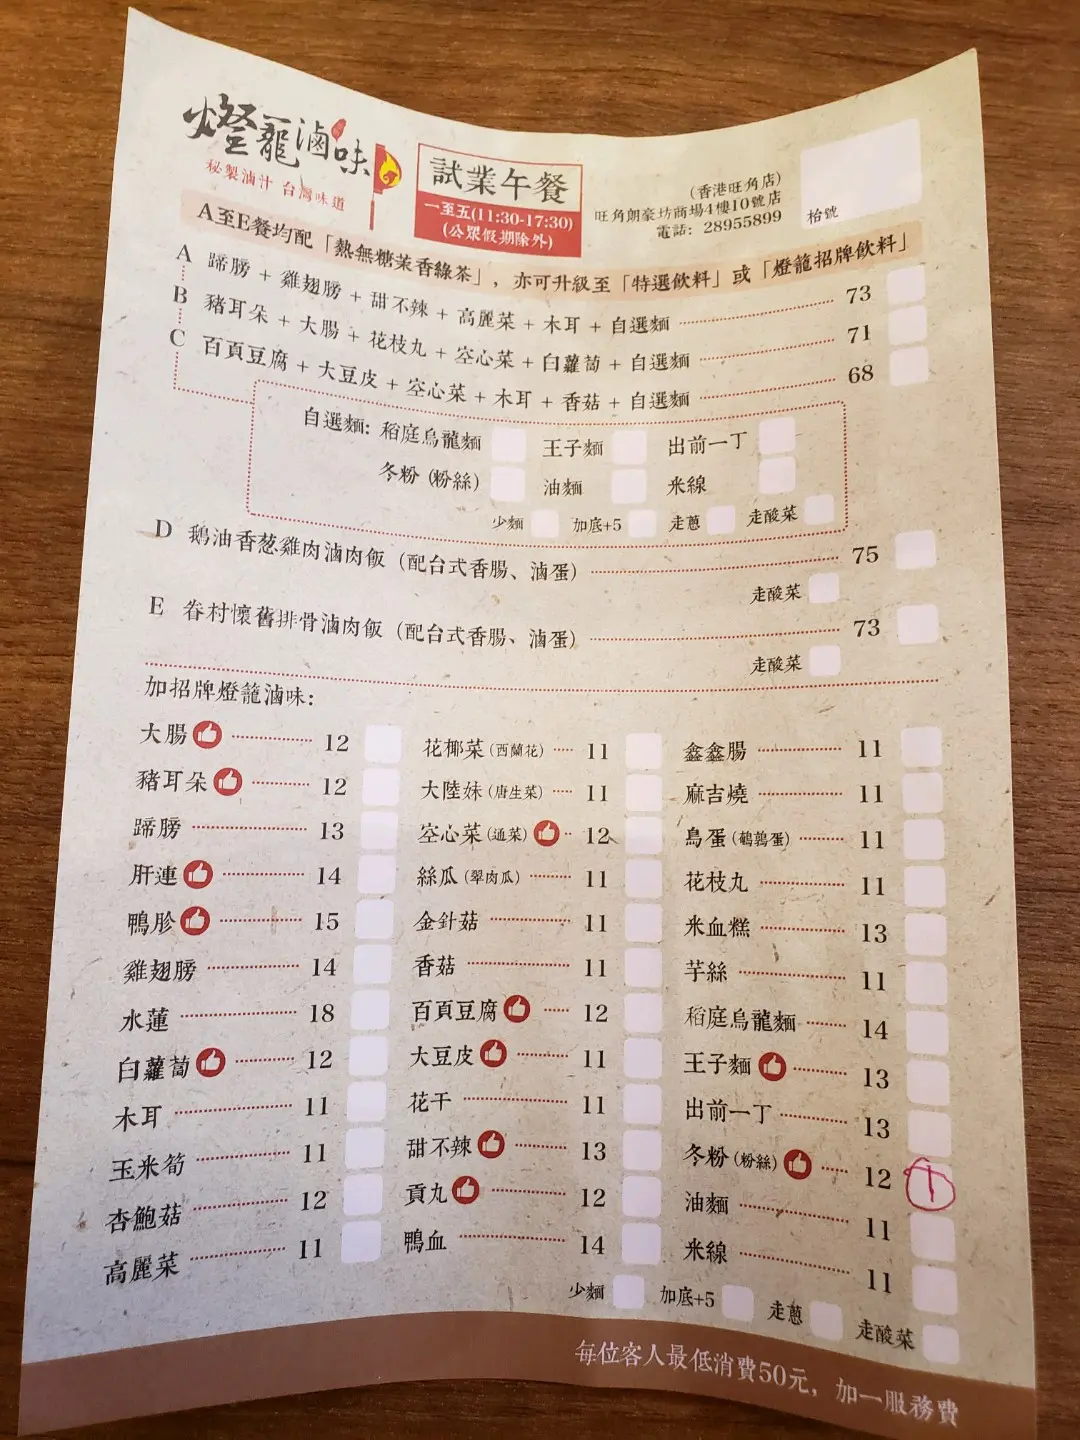 燈籠滷味
秘製滷汁 台灣味道
試業午餐
一至五(11:30-17:30)
(公眾假期除外)
(香港旺角店)
旺角朗豪坊商場4樓10號店
電話: 28955899
枱號
A至E餐均配「熱無糖茉香綠茶」, 亦可升級至「特選飲料」或「燈籠招牌飲料」
A 蹄膀 + 雞翅膀 + 甜不辣 + 高麗菜 + 木耳 + 自選麵 73
B 豬耳朵 + 大腸 + 花枝丸 + 空心菜 + 白蘿蔔 + 自選麵 71
C 百頁豆腐 + 大豆皮 + 空心菜 + 木耳 + 香菇 + 自選麵 68
自選麵: 稻庭烏龍麵 王子麵 出前一丁
冬粉 (粉絲) 油麵 米線
少麵 加底+5 走蔥 走酸菜
D 鵝油香葱雞肉滷肉飯 (配台式香腸、滷蛋) 75
走酸菜
E 眷村懷舊排骨滷肉飯 (配台式香腸、滷蛋) 73
走酸菜
加招牌燈籠滷味:
大腸 12
豬耳朵 12
蹄膀 13
肝連 14
鴨胗 15
雞翅膀 14
水蓮 18
白蘿蔔 12
木耳 11
玉米筍 11
杏鮑菇 12
高麗菜 11
花椰菜 (西蘭花) 11
大陸妹 (唐生菜) 11
空心菜 (通菜) 12
絲瓜 (翠肉瓜) 11
金針菇 11
香菇 11
百頁豆腐 12
大豆皮 11
花干 11
甜不辣 13
貢丸 12
鴨血 14
鑫鑫腸 11
麻吉燒 11
鳥蛋 (鵪鶉蛋) 11
花枝丸 11
米血糕 13
芋絲 11
稻庭烏龍麵 14
王子麵 13
出前一丁 13
冬粉 (粉絲) 12 1
油麵 11
米線 11
少麵 加底+5 走蔥 走酸菜
每位客人最低消費50元, 加一服務費